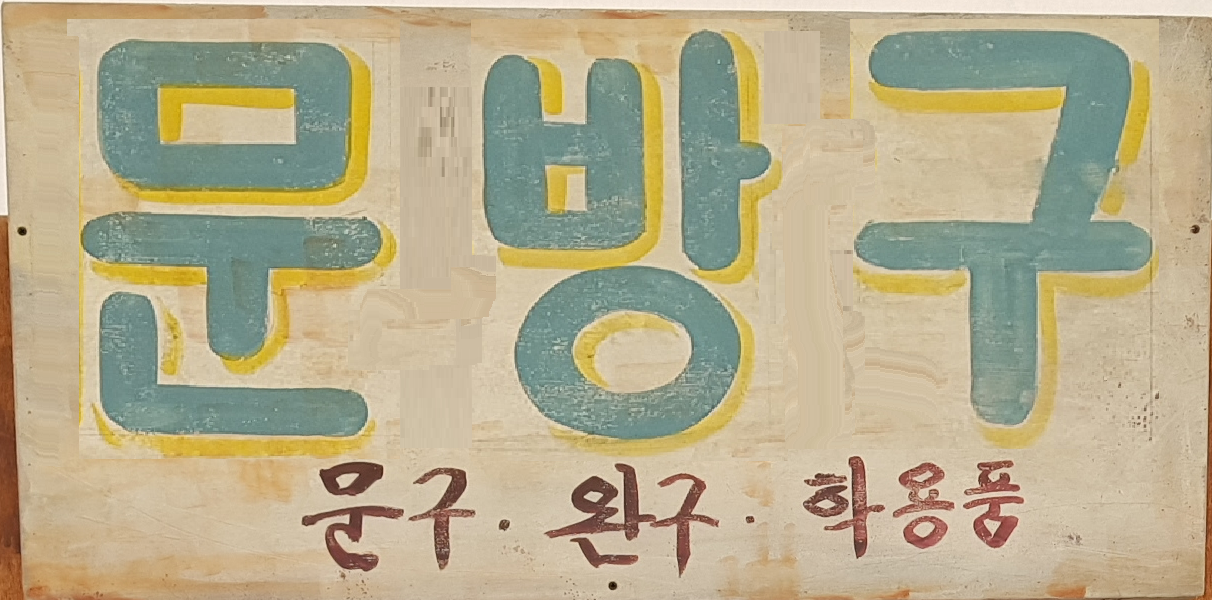 문방구
문구·완구·학용품